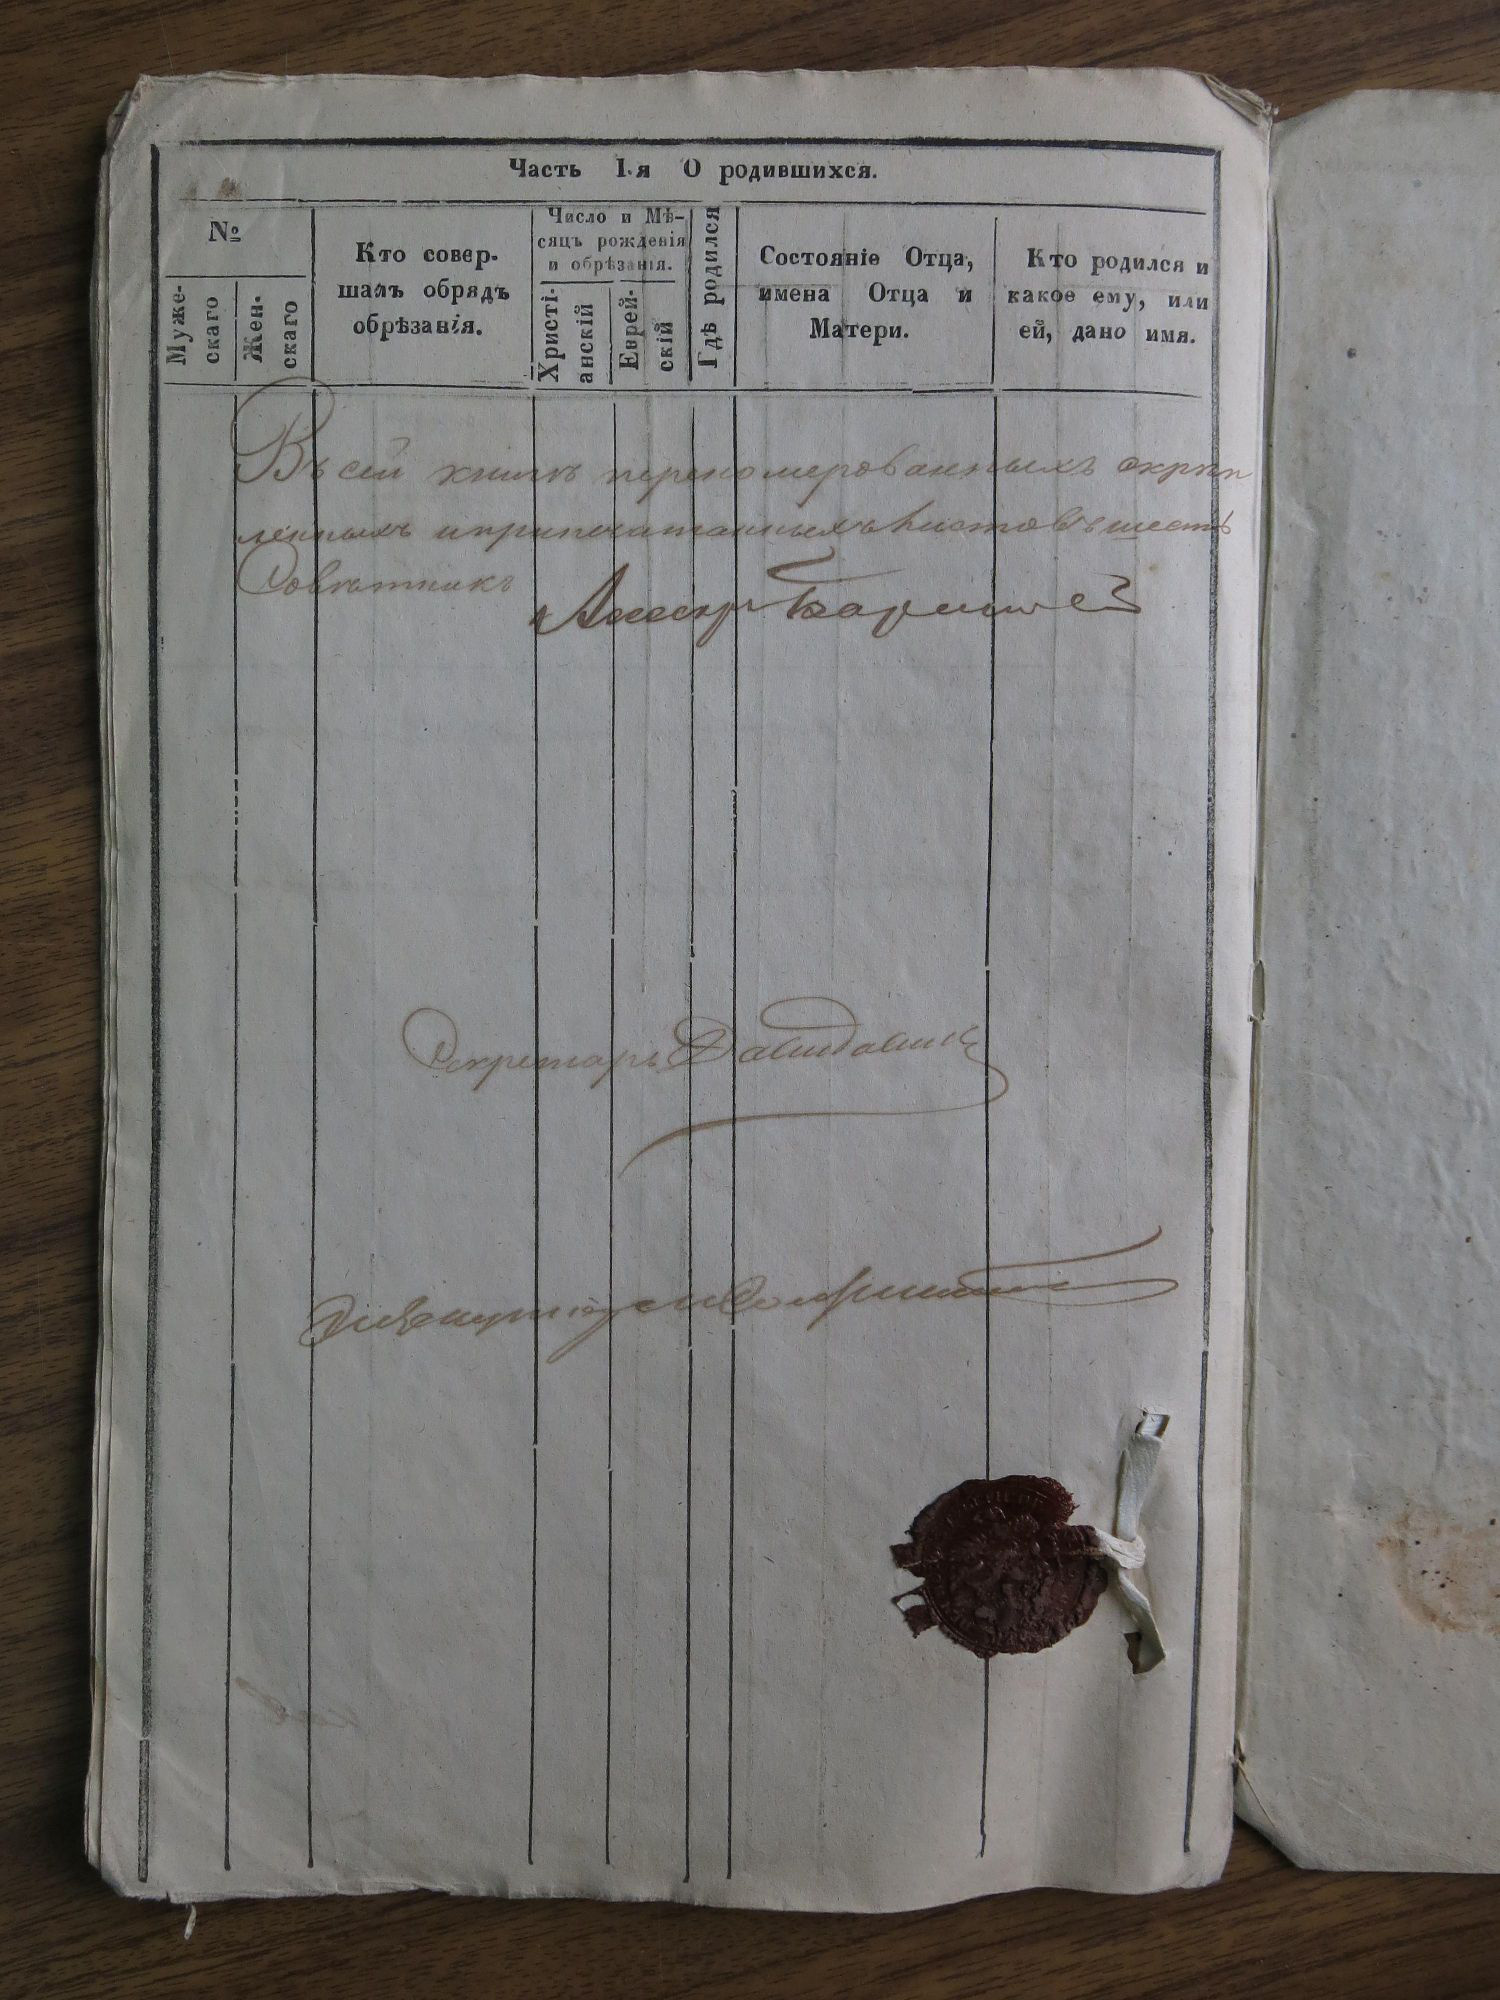 Часть I-я О родившихся.
№
Муже-
скаго
Жен-
скаго
Кто совер-
шалъ обрядъ
обрѣзанія.
Число и Мѣ-
сяцъ рожденія
и обрѣзанія.
Христі-
анскій
Еврей-
скій
Гдѣ родился
Состояніе Отца,
имена Отца и
Матери.
Кто родился и
какое ему, или
ей, дано имя.
Въ сей книгѣ перенумерованныхъ скрѣп
ленныхъ и припечатанныхъ листовъ шесть
Совѣтникъ
Секретарь